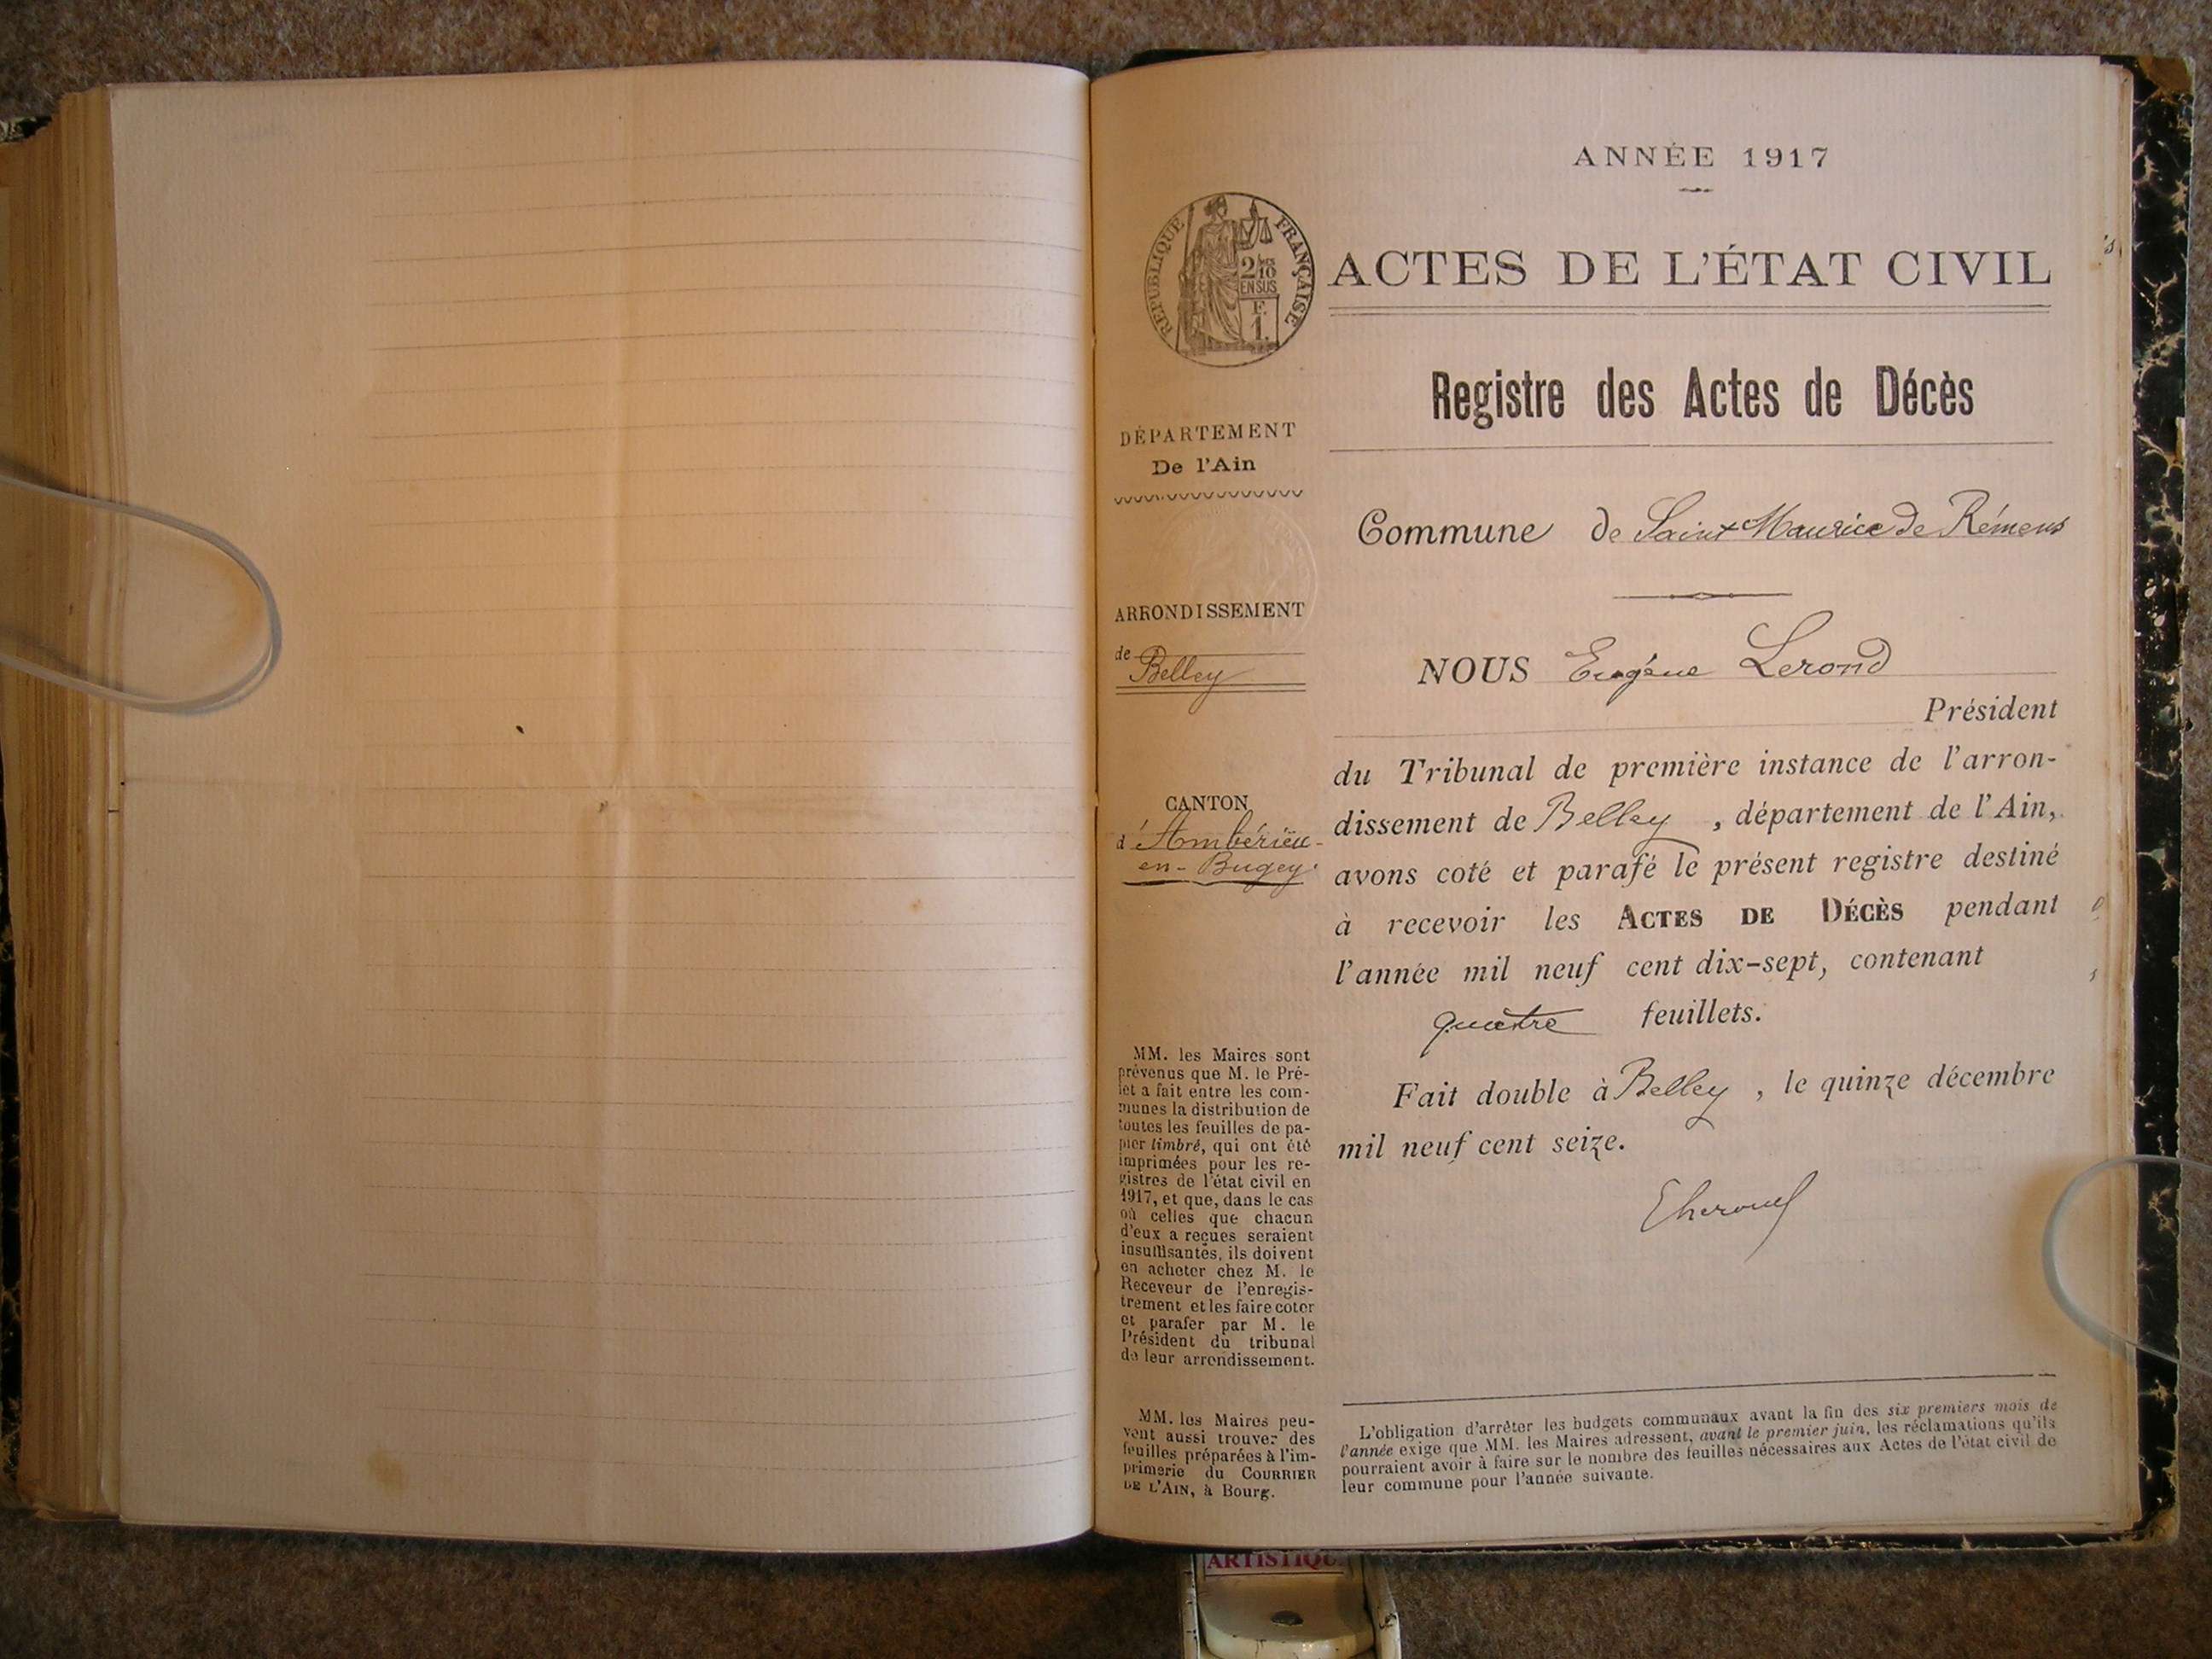 ANNÉE 1917
RÉPUBLIQUE FRANÇAISE
2/10 EN SUS
F.
1.
ACTES DE L'ÉTAT CIVIL
Registre des Actes de Décès
DÉPARTEMENT
De l'Ain
Commune de Saint Maurice de Rémens
ARRONDISSEMENT
de Belley
NOUS Eugène Lerond
Président
du Tribunal de première instance de l'arron-
dissement de Belley , département de l'Ain,
avons coté et parafé le présent registre destiné
à recevoir les ACTES DE DÉCÈS pendant
l'année mil neuf cent dix-sept, contenant
quatre feuillets.
Fait double à Belley , le quinze décembre
mil neuf cent seize.
CANTON
d'Ambérieu-
en-Bugey.
MM. les Maires sont
prévenus que M. le Pré-
fet a fait entre les com-
munes la distribution de
toutes les feuilles de pa-
pier timbré, qui ont été
imprimées pour les re-
gistres de l'état civil en
1917, et que, dans le cas
où celles que chacun
d'eux a reçues seraient
insuffisantes, ils doivent
en acheter chez M. le
Receveur de l'enregis-
trement et les faire coter
et parafer par M. le
Président du tribunal
de leur arrondissement.
MM. les Maires peu-
vent aussi trouver des
feuilles préparées à l'im-
primerie du COURRIER
DE L'AIN, à Bourg.
L'obligation d'arrêter les budgets communaux avant la fin des six premiers mois de
l'année exige que MM. les Maires adressent, avant le premier juin, les réclamations qu'ils
pourraient avoir à faire sur le nombre des feuilles nécessaires aux Actes de l'état civil de
leur commune pour l'année suivante.
ARTISTIQU